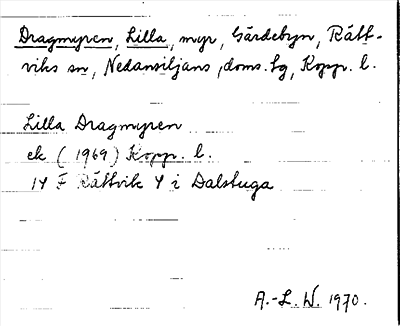 Dragmyren, Lilla, myr, Gärdebyn, Rätt-
viks sn, Nedansiljans, doms. hg, Kopp. l.
Lilla Dragmyren
ek (1969) Kopp. l.
14 F Rättvik 4 i Dalstuga
A.-L. W. 1970.